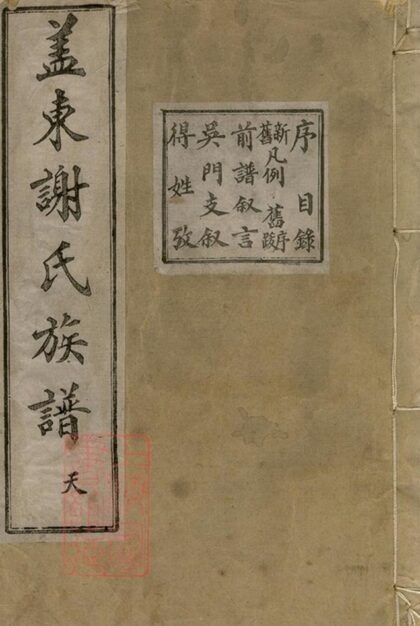 盖東謝氏族譜
天
序目錄
新舊凡例 舊序跋
前譜叙言
吳門支叙
得姓攷